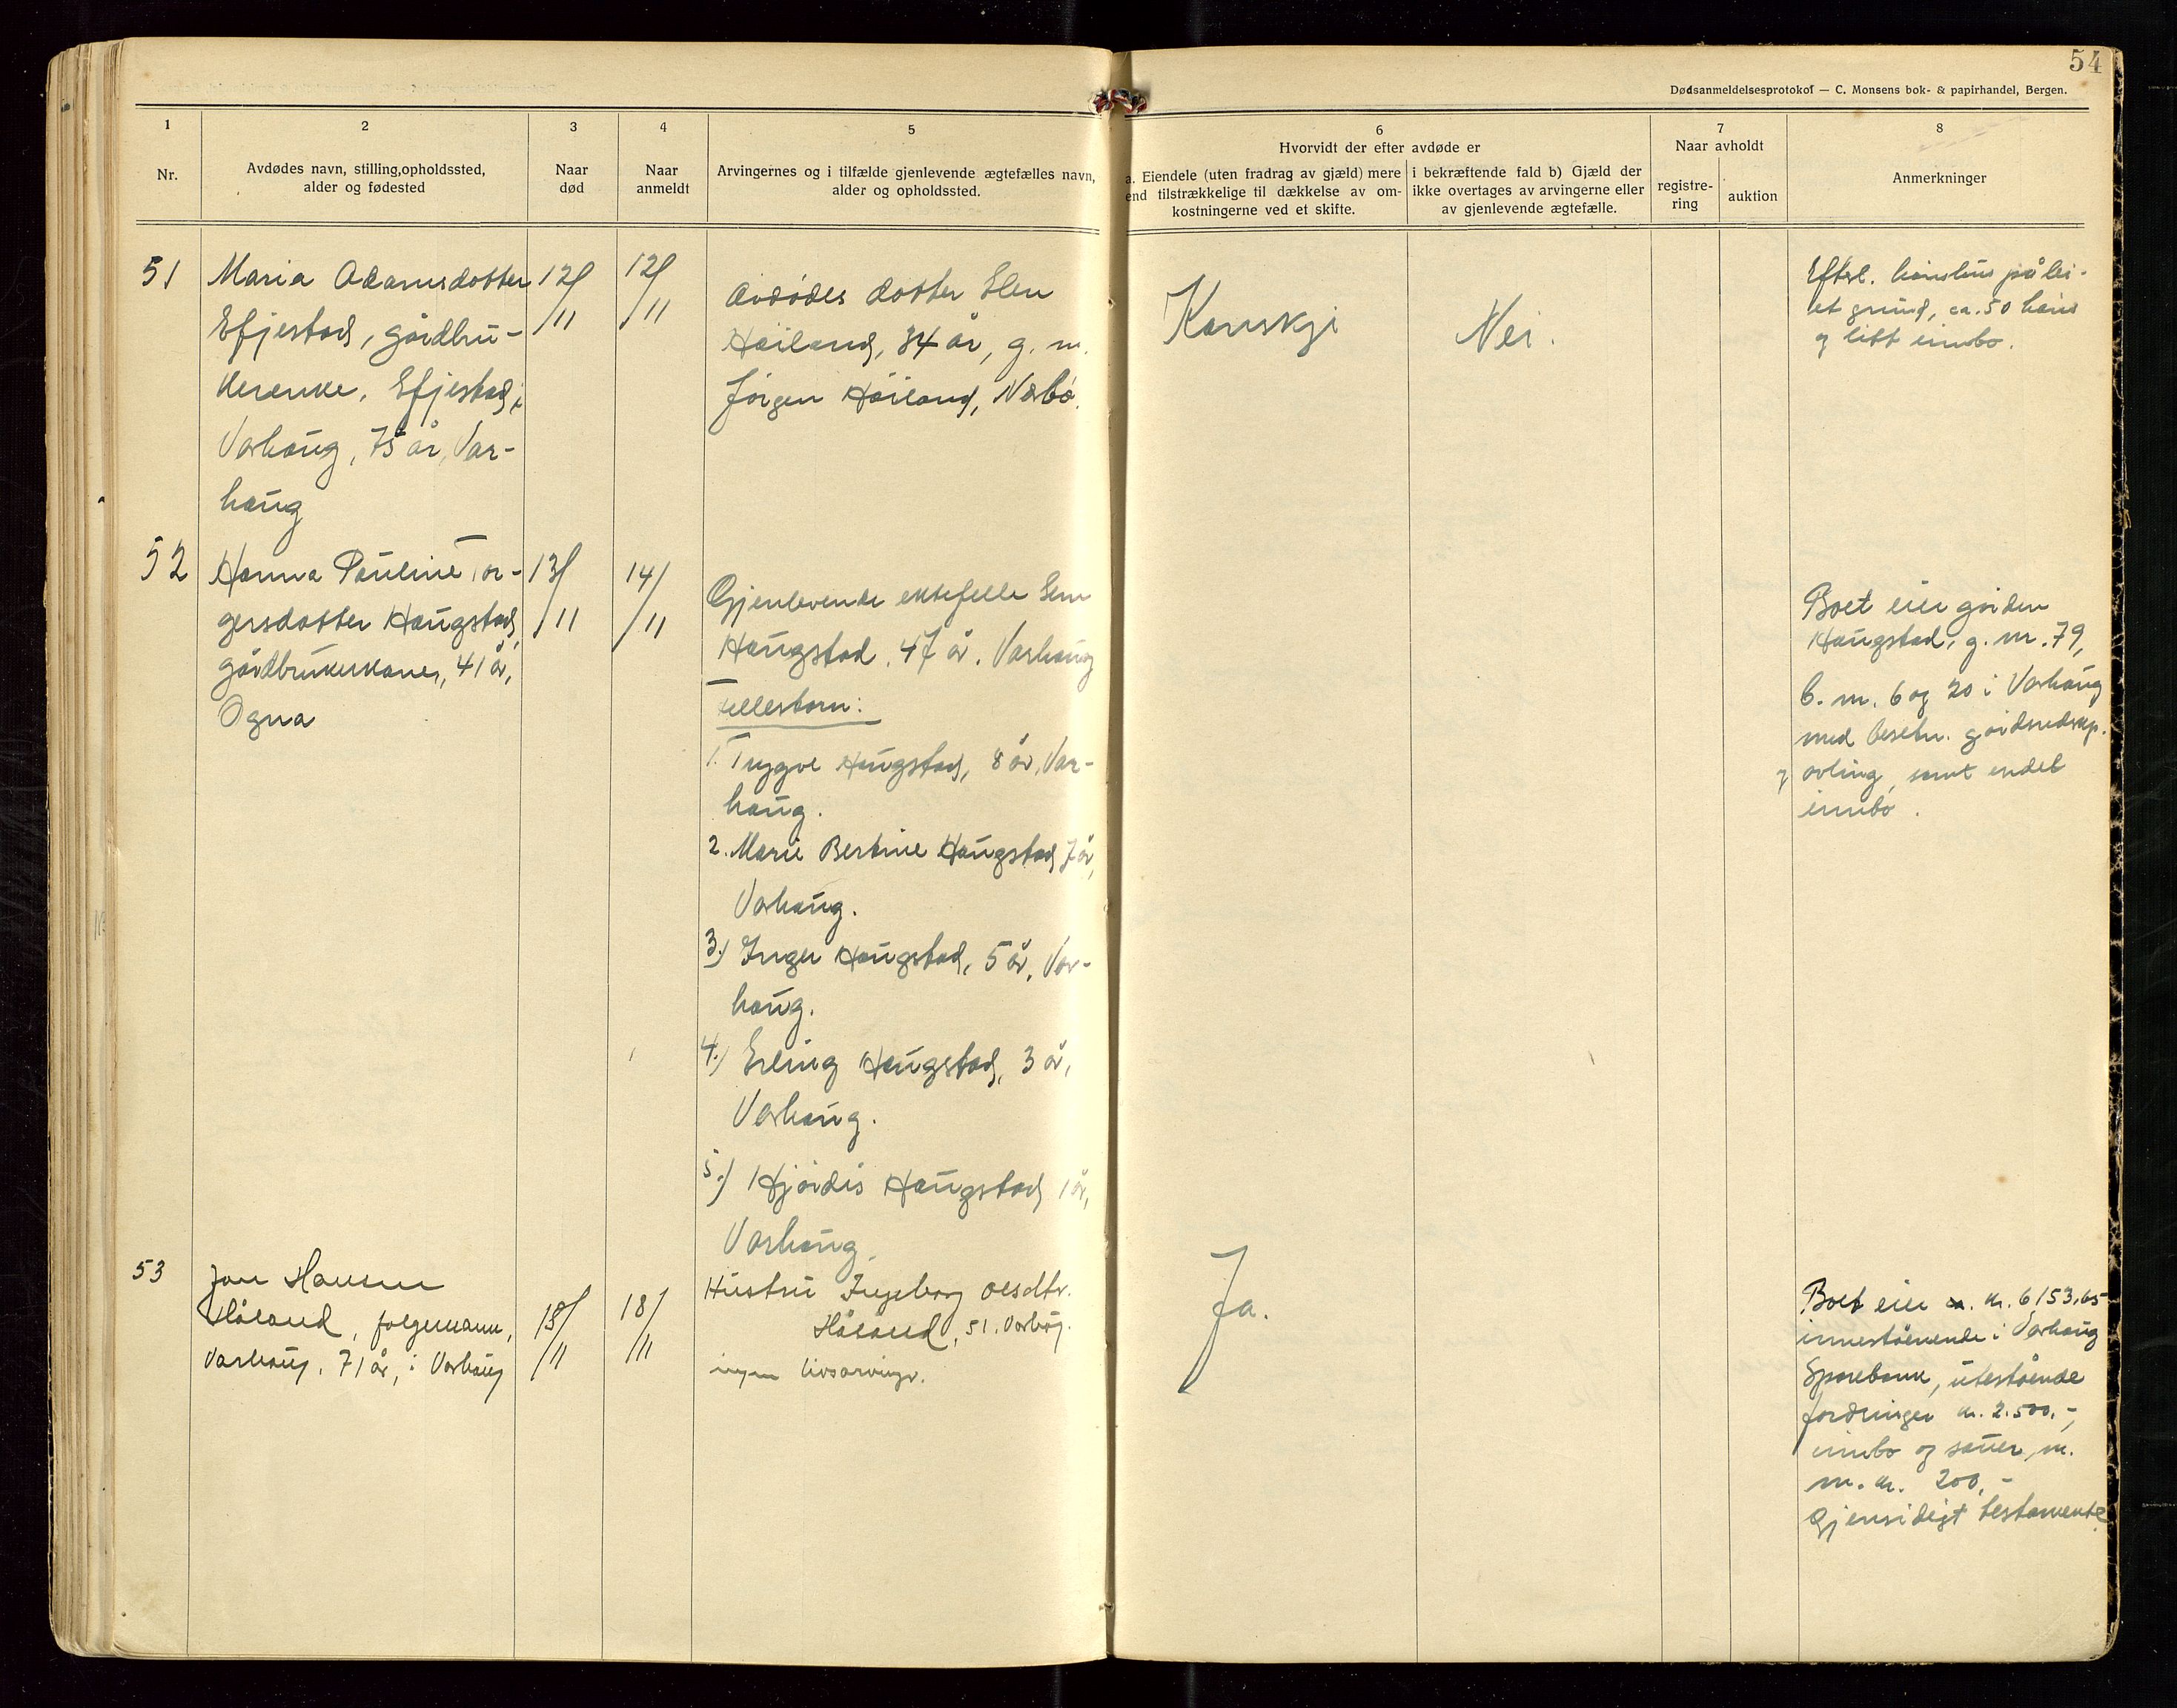 54
Dødsanmeldelsesprotokol — C. Monsens bok- & papirhandel, Bergen.
1
Nr.
2
Avdødes navn, stilling, opholdssted,
alder og fødested
3
Naar
død
4
Naar
anmeldt
5
Arvingernes og i tilfælde gjenlevende ægtefælles navn,
alder og opholdssted.
6
Hvorvidt der efter avdøde er
a. Eiendele (uten fradrag av gjæld) mere
end tilstrækkelige til dækkelse av om-
kostningerne ved et skifte.
i bekræftende fald b) Gjæld der
ikke overtages av arvingerne eller
av gjenlevende ægtefælle.
7
Naar avholdt
registre-
ring
auktion
8
Anmerkninger
51
Maria Adamsdotter
Efjestad, gårdbru-
kerenke, Efjestad i
Varhaug, 75 år, Var-
haug
12/
/11
12/
/11
Avdødes dotter Elen
Høiland, 34 år, g. m.
Jørgen Høiland, Nærbø.
Kanskji
Nei.
Efterl. hønshus på lei-
et grund, ca. 50 høns
og litt innbo.
52
Hanna Pauline Tor-
gersdotter Haugstad,
gårdbrukerkone, 41 år,
Ogna
13/
/11
14/
/11
Gjenlevende ektefelle
Haugstad, 47 år, Varhaug
Fellesborn:
1. Trygve Haugstad, 8 år, Var-
haug.
2. Marie Bertine Haugstad 7 år,
Varhaug.
3.) Inger Haugstad, 5 år, Var-
haug.
4.) Erling Haugstad, 3 år,
Varhaug.
5.) Hjördis Haugstad 1 år,
Varhaug.
Boet eier gården
Haugstad, g. nr. 79,
b. nr. 6 og 20 i Varhaug
med besetn. gårdsredskap.
og avling, samt endel
innbo.
53
Jon Hansen
Håland, folgemann,
Varhaug, 71 år, i Varhaug
15/
/11
18/
/11
Hustru Ingeborg
Håland, 51. Varhaug.
ingen livsarvinger.
Ja.
Boet eier ca. kr. 6153,65
innestående i Varhaug
Sparebank, utestående
fordringer kr. 2.500.-,
innbo og sauer, m.
m. kr. 200,-
Gjensidigt testamente.